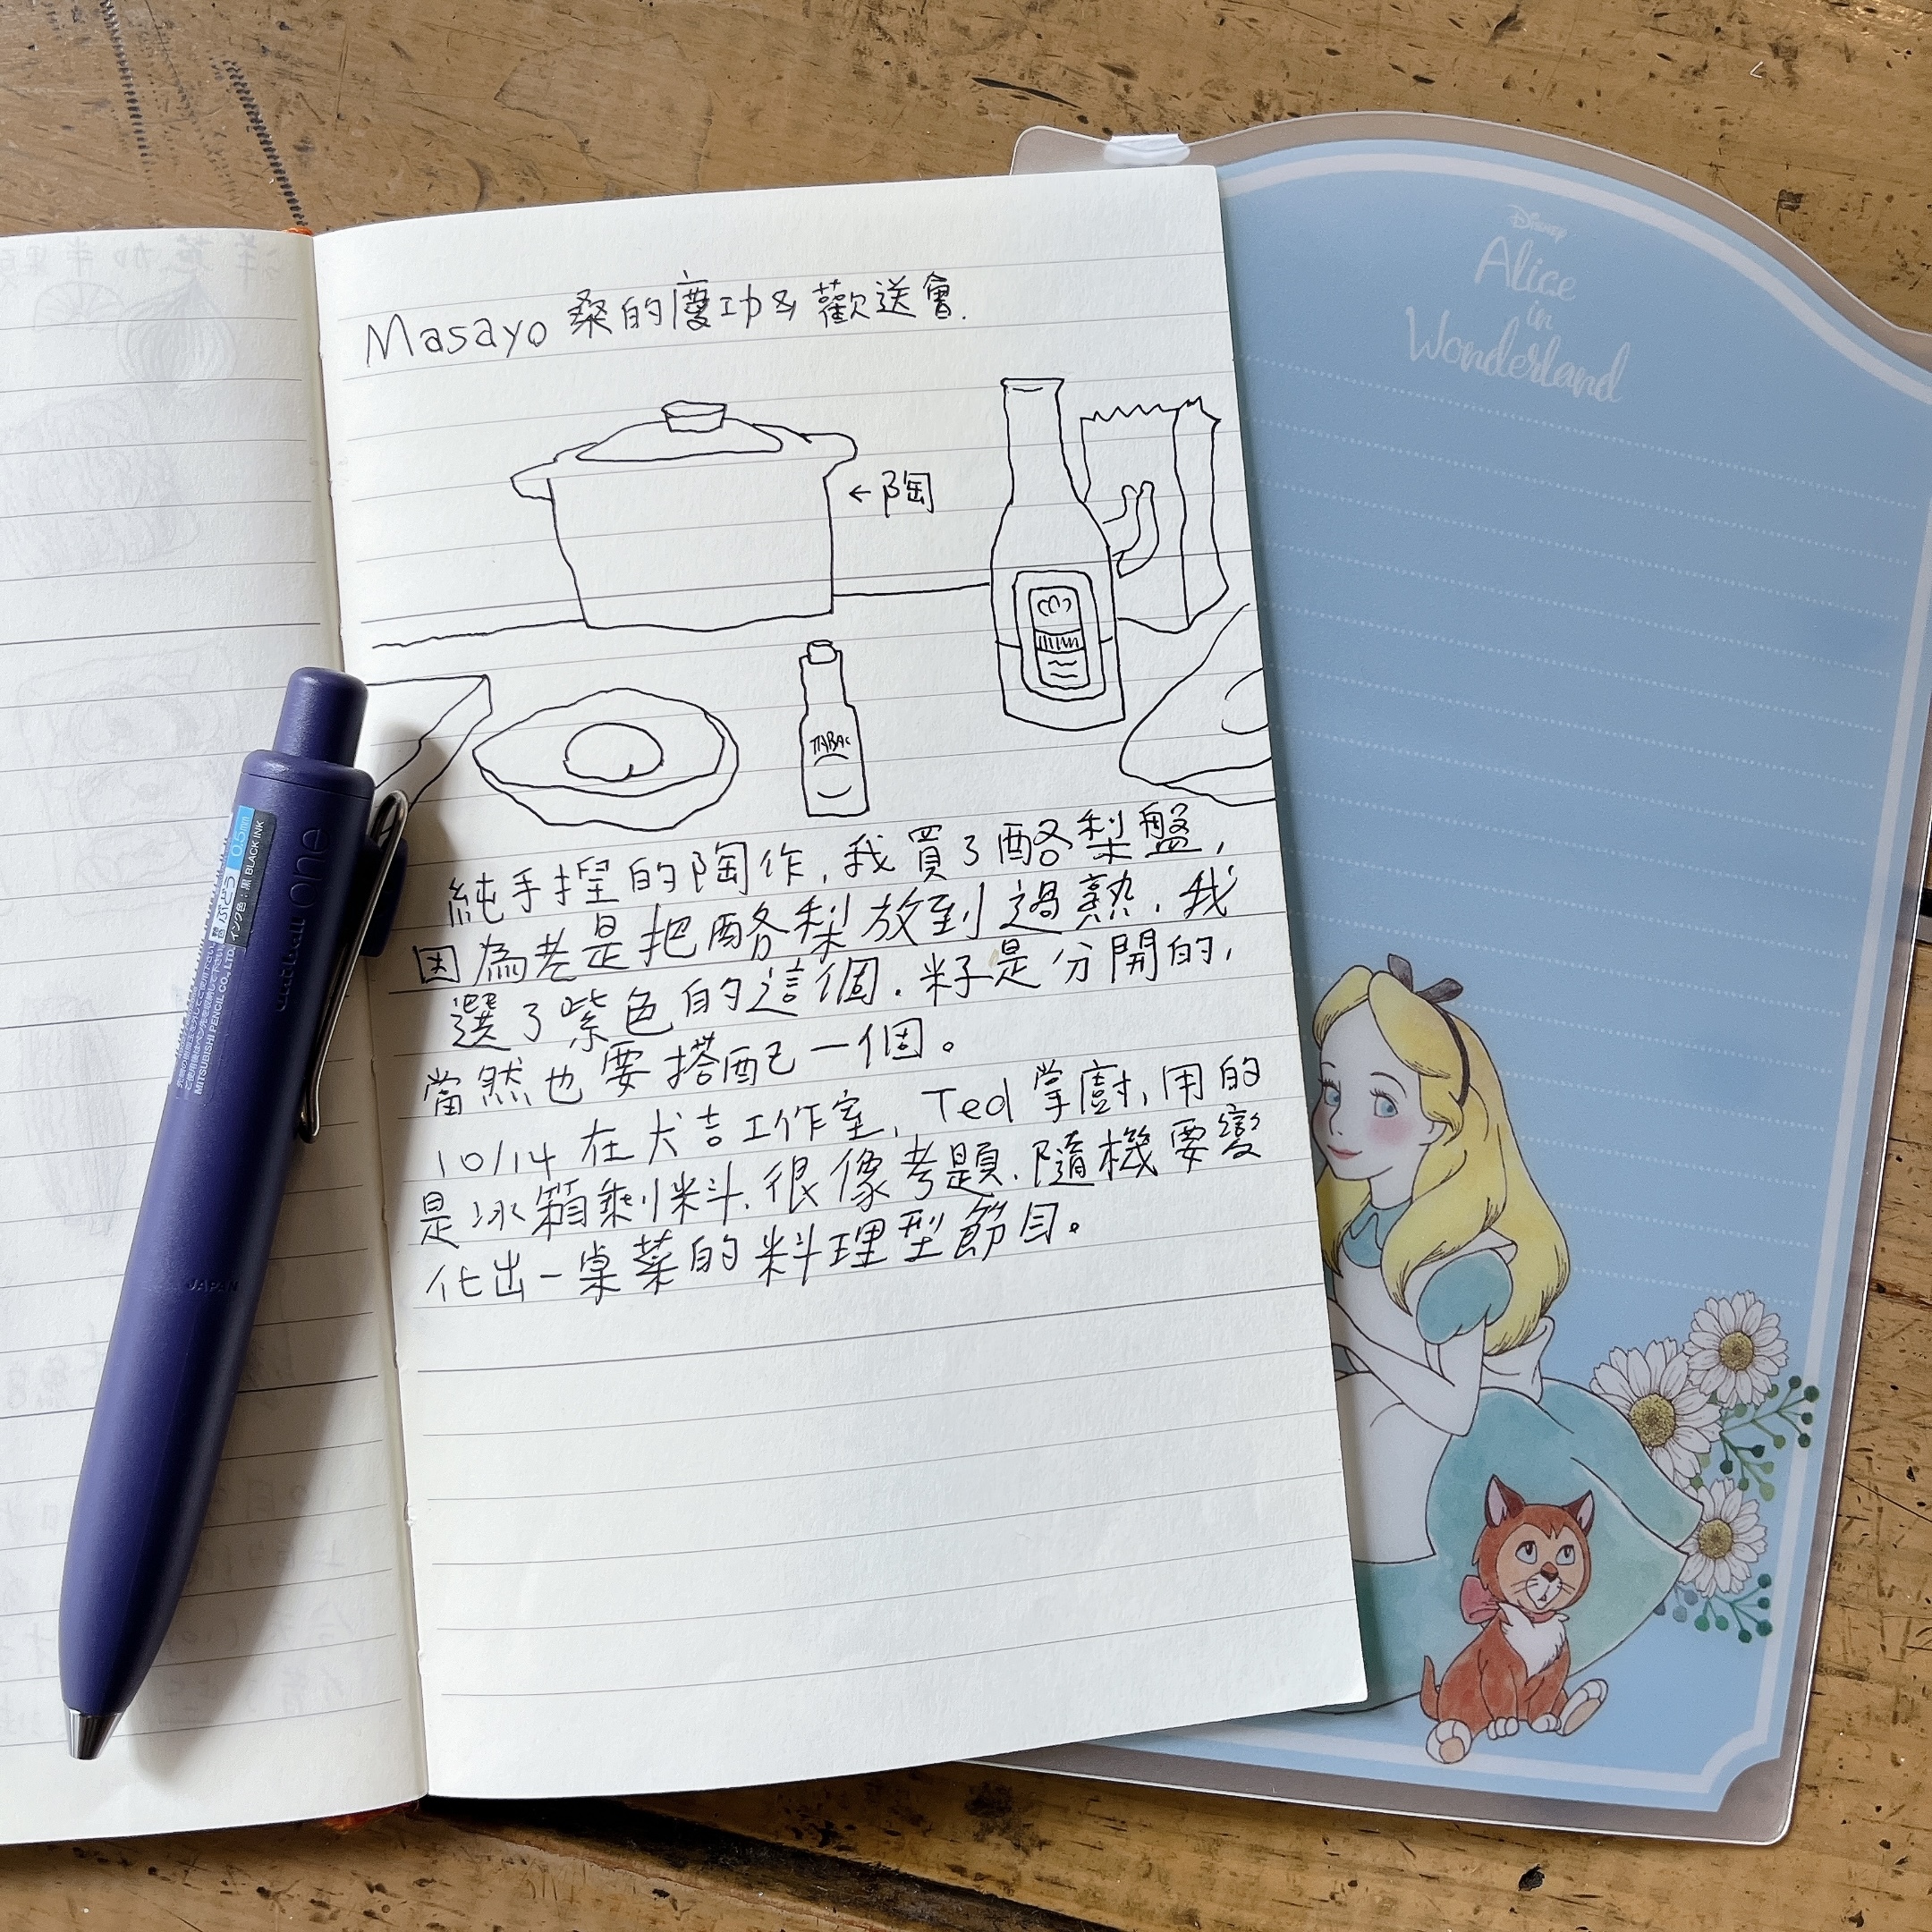 Masayo 桑的慶功&歡送會.
←陶
TABAC
純手捏的陶作,我買了酪梨盤,
因為老是把酪梨放到過熟.我
選了紫色的這個.籽是分開的,
當然也要搭配一個。
10/14 在犬吉工作室, Ted 掌廚,用的
是冰箱剩料.很像考題.隨機要變
化出一桌菜的料理型節目。
Disney
Alice
in
Wonderland
uniball one
0.5mm
ぶどう
インク色:黒 BLACK INK
MITSUBISHI PENCIL CO., LTD.
JAPAN